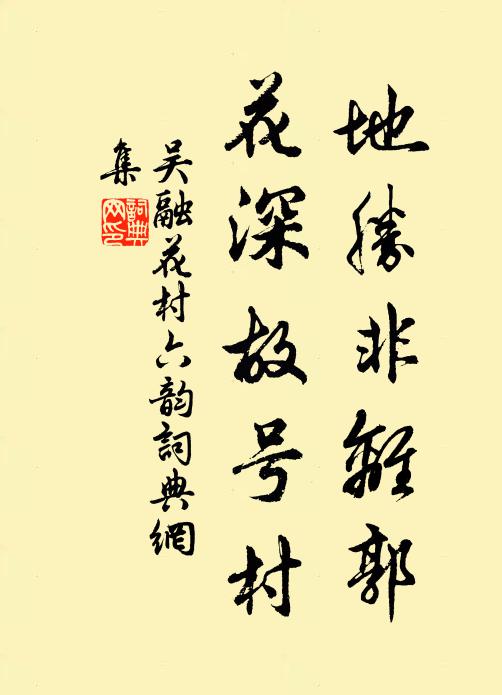 地胜非离郭
花深故号村
吴融花村六韵词典網
集
詞典
网印